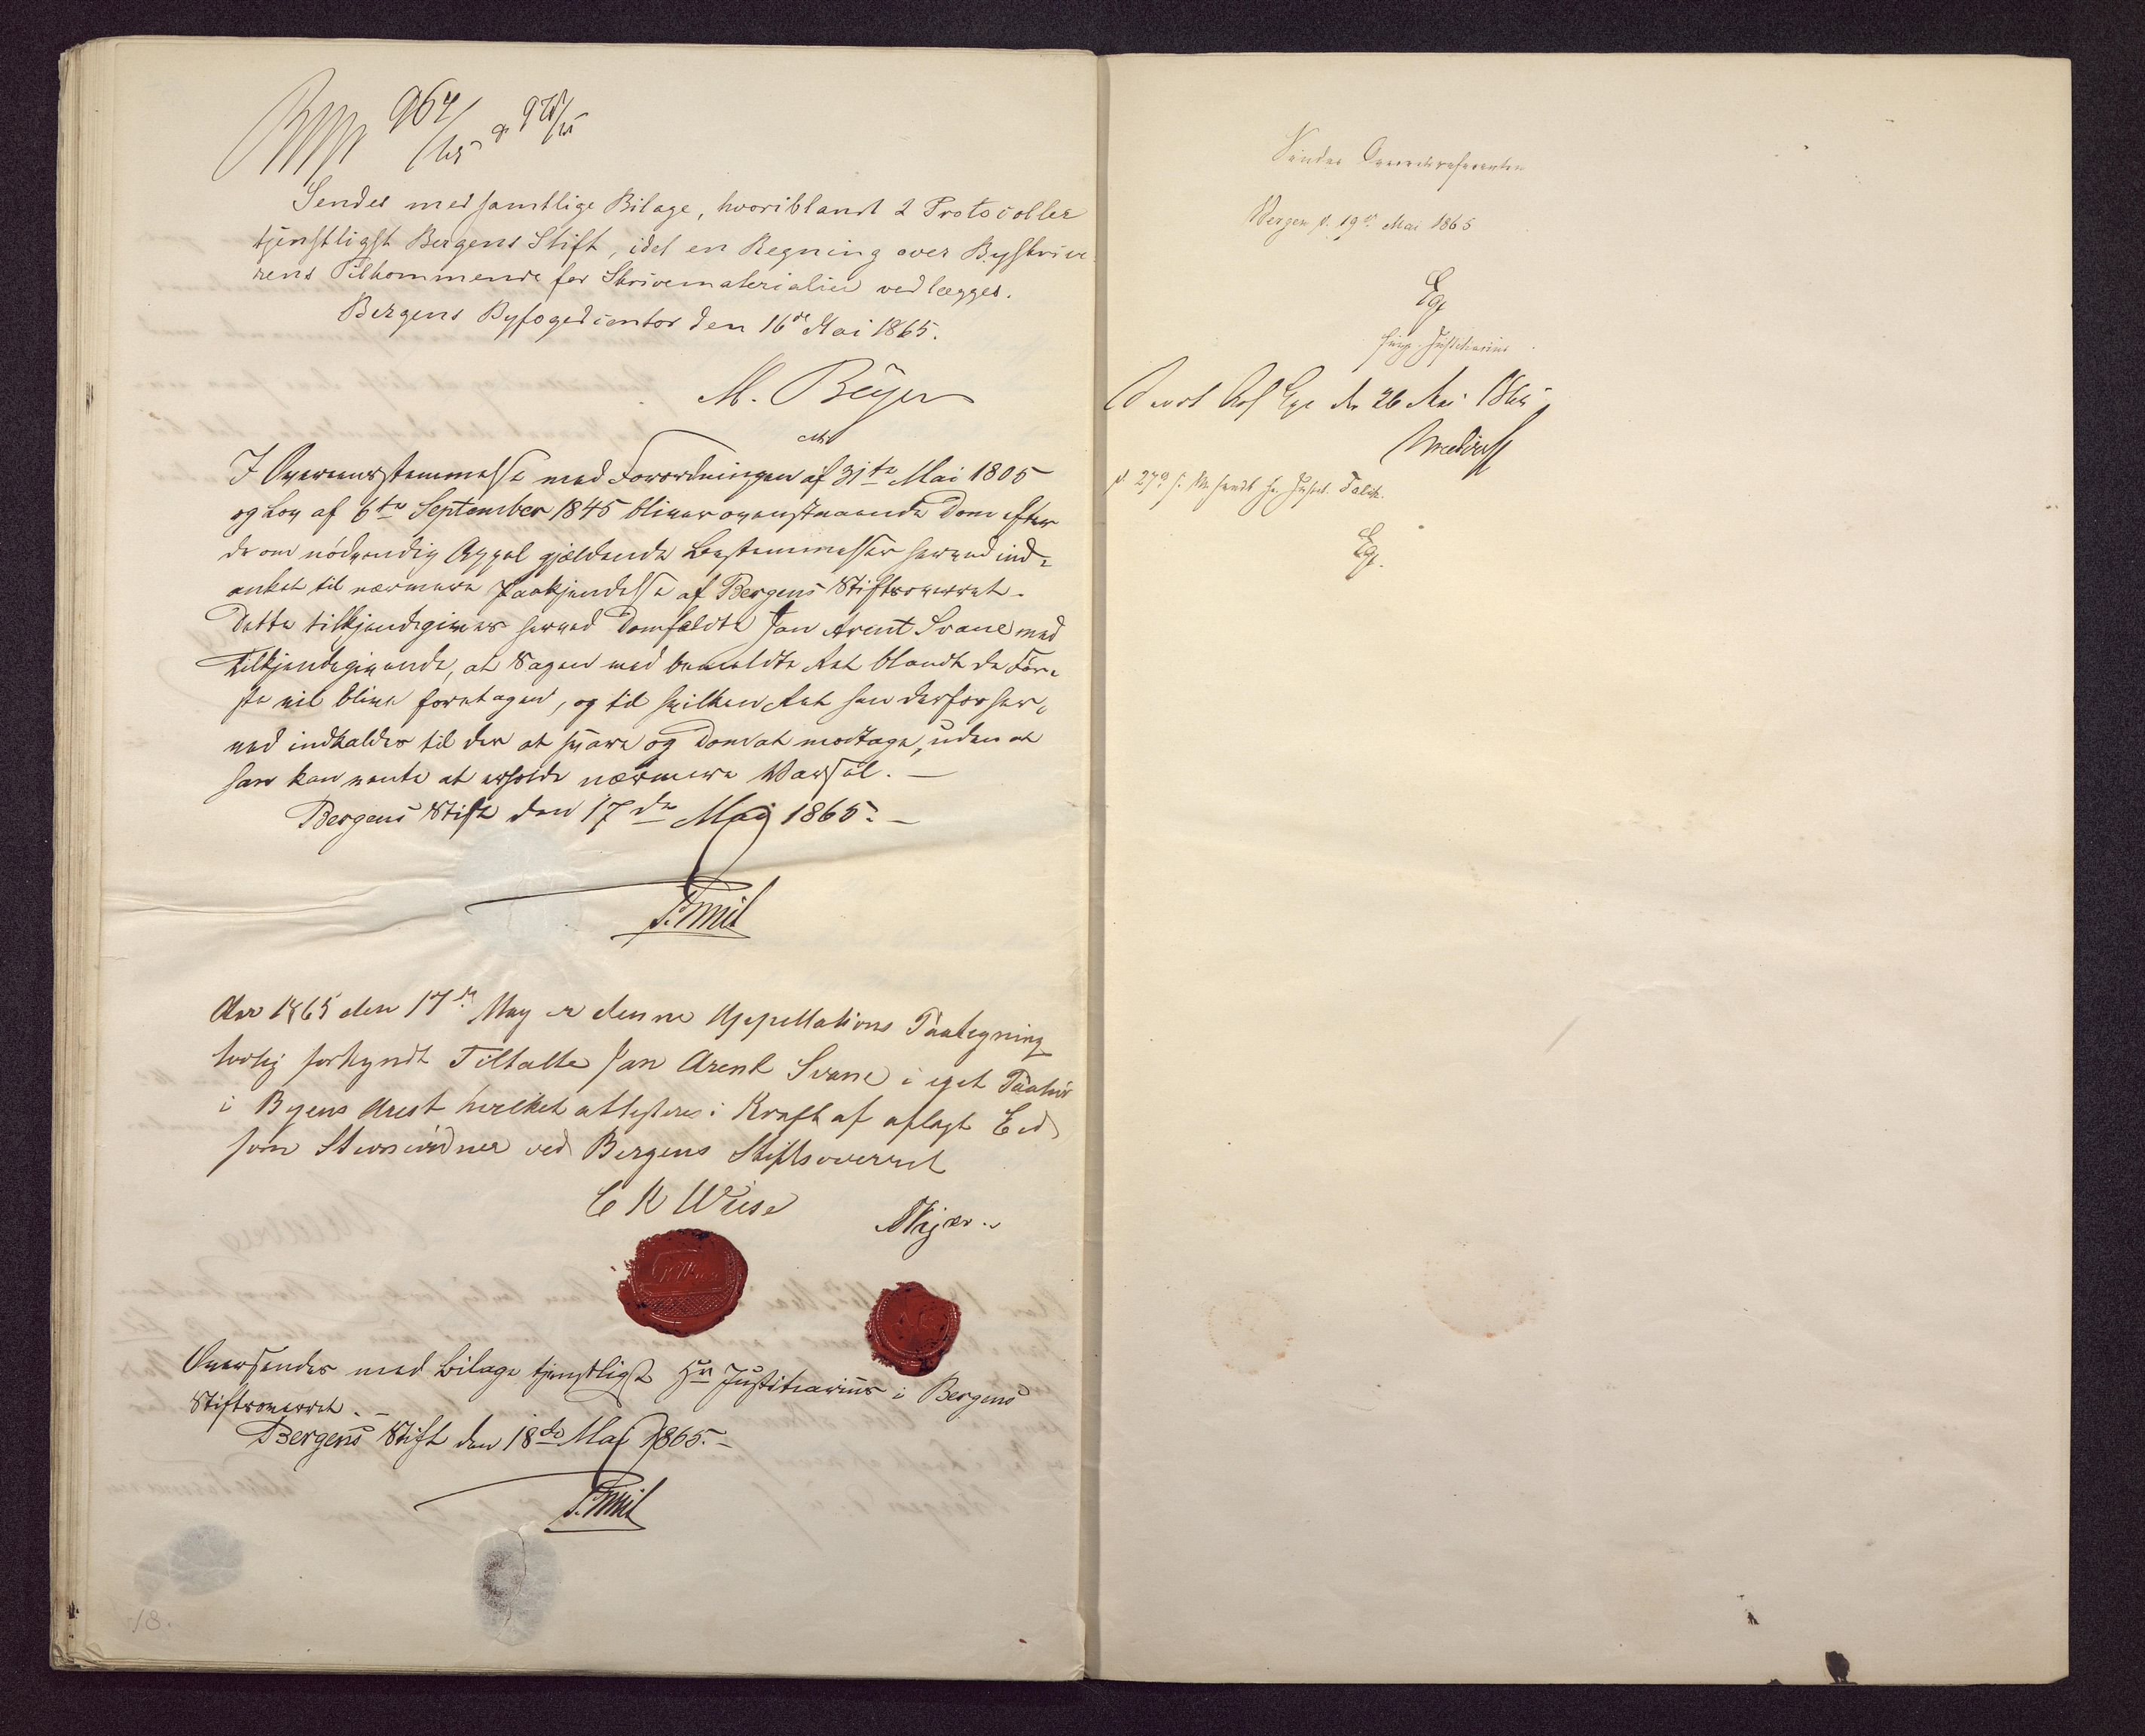 964/65 & 970/65
Sendes med samtlige Bilage, hvoriblandt 2 Protocoller
tjenstligst Bergens Stift, idet en Regning over Byskrive-
rens Tilkommende for Skrivematerialier vedlægges.
Bergens Byfogedcontor den 16de Mai 1865.
M. Beyer
I Overeensstemmelse med Forordningen af 31te Mai 1805
og Lov af 6te September 1845 bliver ovenstaaende Dom efter
de om nödvendig Appel gjældende Bestemmelser herved ind-
anket til nærmere Paakjendelse af Bergens Stiftsoverret.
Dette tilkjendegives herved Domfældte Jan Arent Svane med
Tilkjendegivende, at Sagen ved bemeldte Ret blandt de För-
ste vil blive foretagen, og til hvilken Ret han derfor her-
ved indkaldes til der at svare og Dom at modtage, uden at
han kan vente at erholde nærmere Varsel. —
Bergens Stift den 17de Mai 1865. —
Aar 1865 den 17de May er denne Appellations Paategning
lovlig forkyndt Tiltalte Jan Arent Svane i eget Paahör
i Byens Arest hvilket attesteres i Kraft af aflagt Eed
som Stevnevidner ved Bergens Stiftsoverret
C K Wiese
Oversendes med Bilage tjenstligst Hr Justitiarius i Bergens
Stiftsoverret. —
Bergens Stift den 18de Mai 1865. —
18.
Sendes Overretsreferenten
Bergen d. 19de Mai 1865
Ege
fung. Justitiarius
Ege den 26 Mai 1865
d. 27de s. M. sendt Hr
Ege.